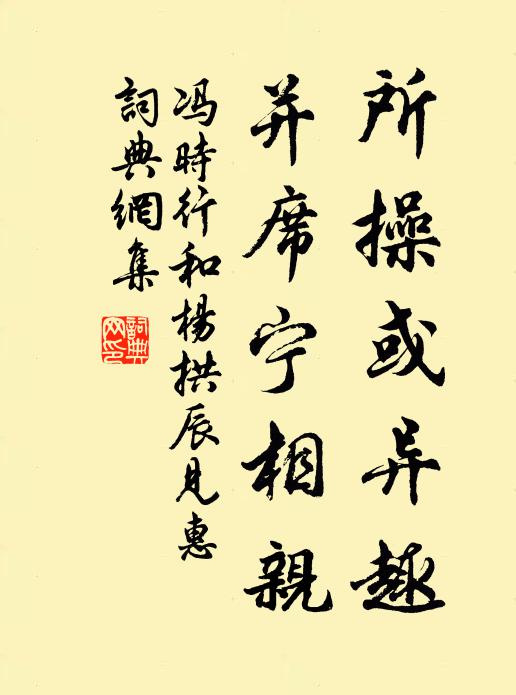 所操或异趣
并席宁相親
冯時行和楊拱辰見惠
詞典網集
詞典网印